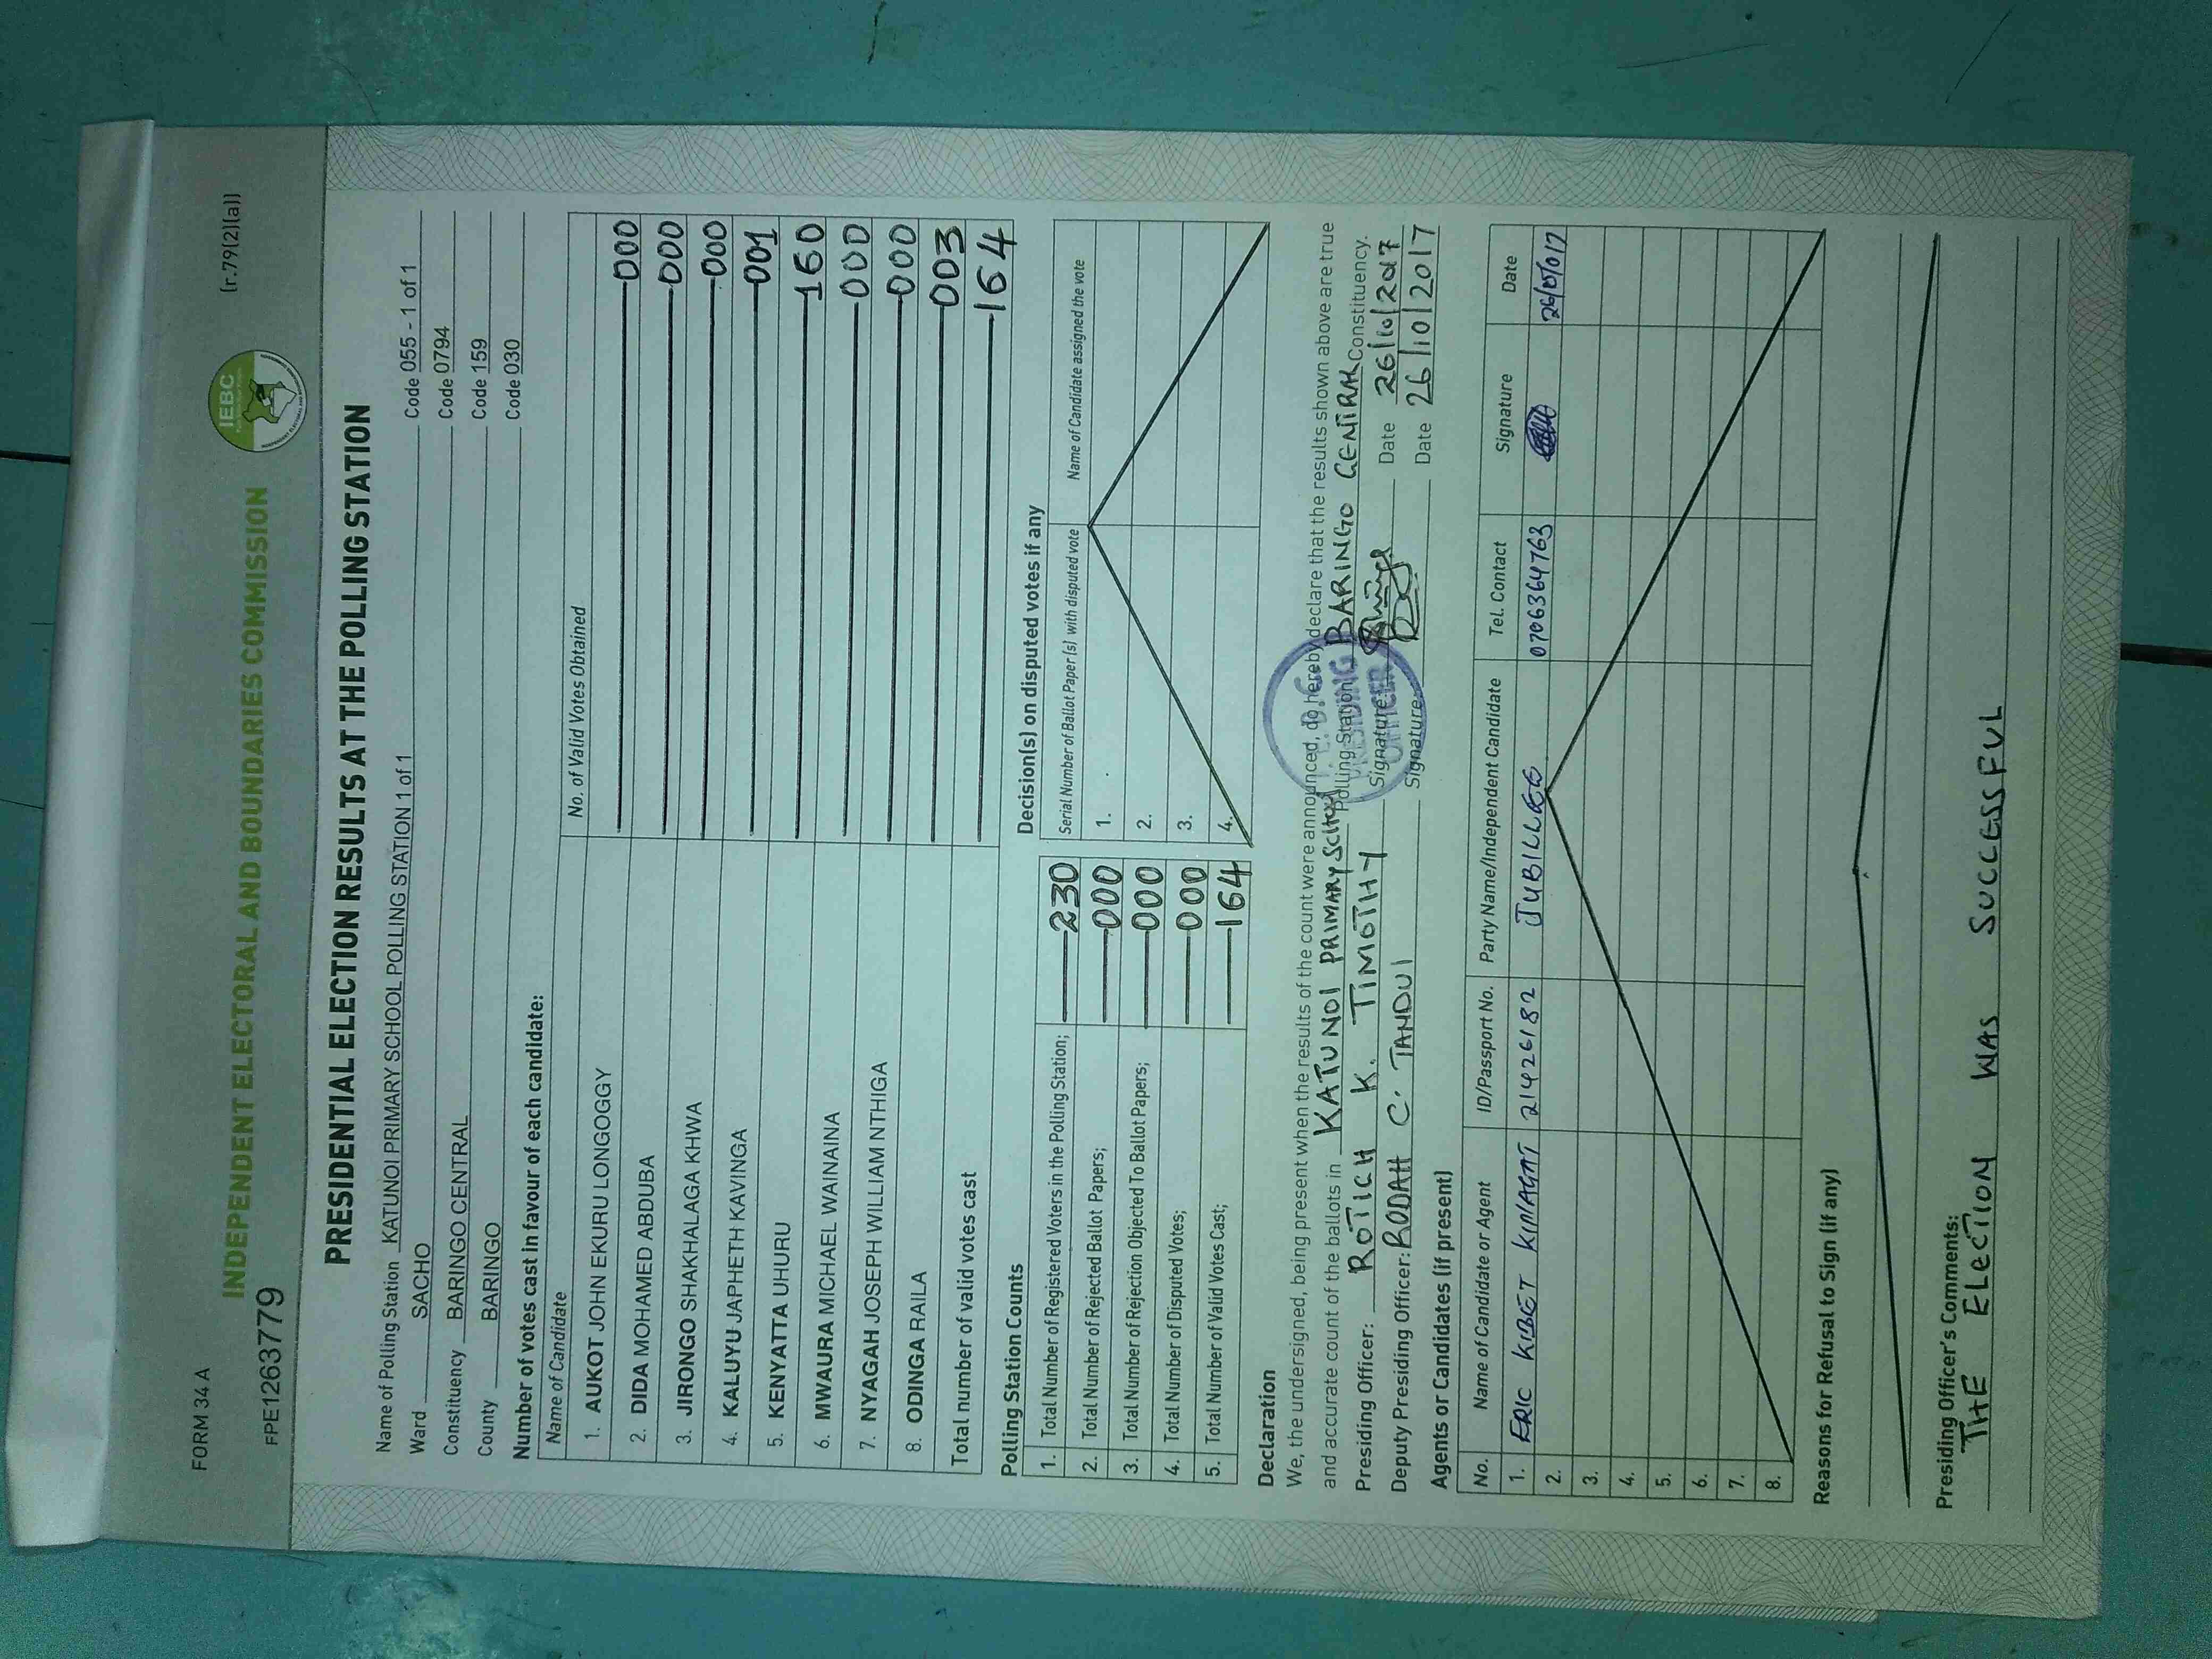 FORM 34 A
(r.79(2)(a))
IEBC
INDEPENDENT ELECTORAL AND BOUNDARIES COMMISSION
FPE1263779
PRESIDENTIAL ELECTION RESULTS AT THE POLLING STATION
Name of Polling Station KATUNOI PRIMARY SCHOOL POLLING STATION 1 of 1 Code 055 - 1 of 1
Ward SACHO Code 0794
Constituency BARINGO CENTRAL Code 159
County BARINGO Code 030
Number of votes cast in favour of each candidate:
Name of Candidate No. of Valid Votes Obtained
1. AUKOT JOHN EKURU LONGOGGY 000
2. DIDA MOHAMED ABDUBA 000
3. JIRONGO SHAKHALAGA KHWA 000
4. KALUYU JAPHETH KAVINGA 001
5. KENYATTA UHURU 160
6. MWAURA MICHAEL WAINAINA 000
7. NYAGAH JOSEPH WILLIAM NTHIGA 000
8. ODINGA RAILA 003
Total number of valid votes cast 164
Polling Station Counts
1. Total Number of Registered Voters in the Polling Station; 230
2. Total Number of Rejected Ballot Papers; 000
3. Total Number of Rejection Objected To Ballot Papers; 000
4. Total Number of Disputed Votes; 000
5. Total Number of Valid Votes Cast; 164
Decision(s) on disputed votes if any
Serial Number of Ballot Paper (s) with disputed vote Name of Candidate assigned the vote
1.
2.
3.
4.
Declaration
We, the undersigned, being present when the results of the count were announced, do hereby declare that the results shown above are true
and accurate count of the ballots in KATUNOI PRIMARY SCHOOL Polling Station BARINGO CENTRAL Constituency.
Presiding Officer: ROTICH K. TIMOTHY Signature: Date 26/10/2017
Deputy Presiding Officer: RODAH C. TANDUI Signature: Date 26/10/2017
PRESIDING
OFFICER
Agents or Candidates (if present)
No. Name of Candidate or Agent ID/Passport No. Party Name/Independent Candidate Tel. Contact Signature Date
1. ERIC KIBET 21426182 JUBILLEE 0706364763
2.
3.
4.
5.
6.
7.
8.
Reasons for Refusal to Sign (if any)
Presiding Officer's Comments:
THE ELECTION WAS SUCCESSFUL